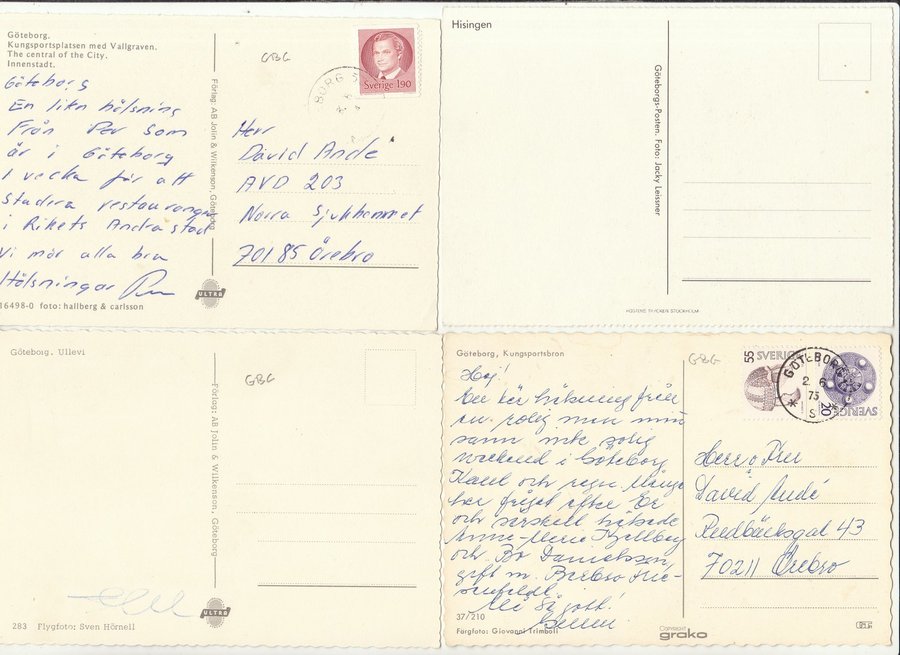 Göteborg.
Kungsportsplatsen med Vallgraven.
The central of the City.
Innenstadt.
GBG
BORG
Sverige 190
Göteborg
En liten hälsning
Från Per Som
är i Göteborg
1 vecka för att
studera restauranger
i Rikets Andra stad
Vi mår alla bra
Hälsningar
Förlag: AB Jolin & Wilkenson, Göteborg
Herr
David Andé
AVD 203
Norra Sjukhemmet
701 85 Örebro
ULTRA
16498-0 foto: hallberg & carlsson
Hisingen
Göteborgs-Posten. Foto: Jacky Leissner
Göteborg. Ullevi
GBG
Förlag: AB Jolin & Wilkenson, Göteborg
ULTRA
283 Flygfoto: Sven Hörnell
Göteborg, Kungsportsbron
GBG
55 SVERIGE
SVERIGE 20
GÖTEBORG
2. 6
75
S
Hej!
En kär hälsning från
en rolig men
sann inte solig
weekend i Göteborg
Kallt och regn. Många
har frågat efter Er
och särskilt hälsade
Anne-Marie Kjellberg
och Bo Danielsson,
gift m. Barbro
Må så gott!
Herr o Fru
David Andé
70211 Örebro
37/210
Färgfoto: Giovanni Trimboli
Copyright
grako